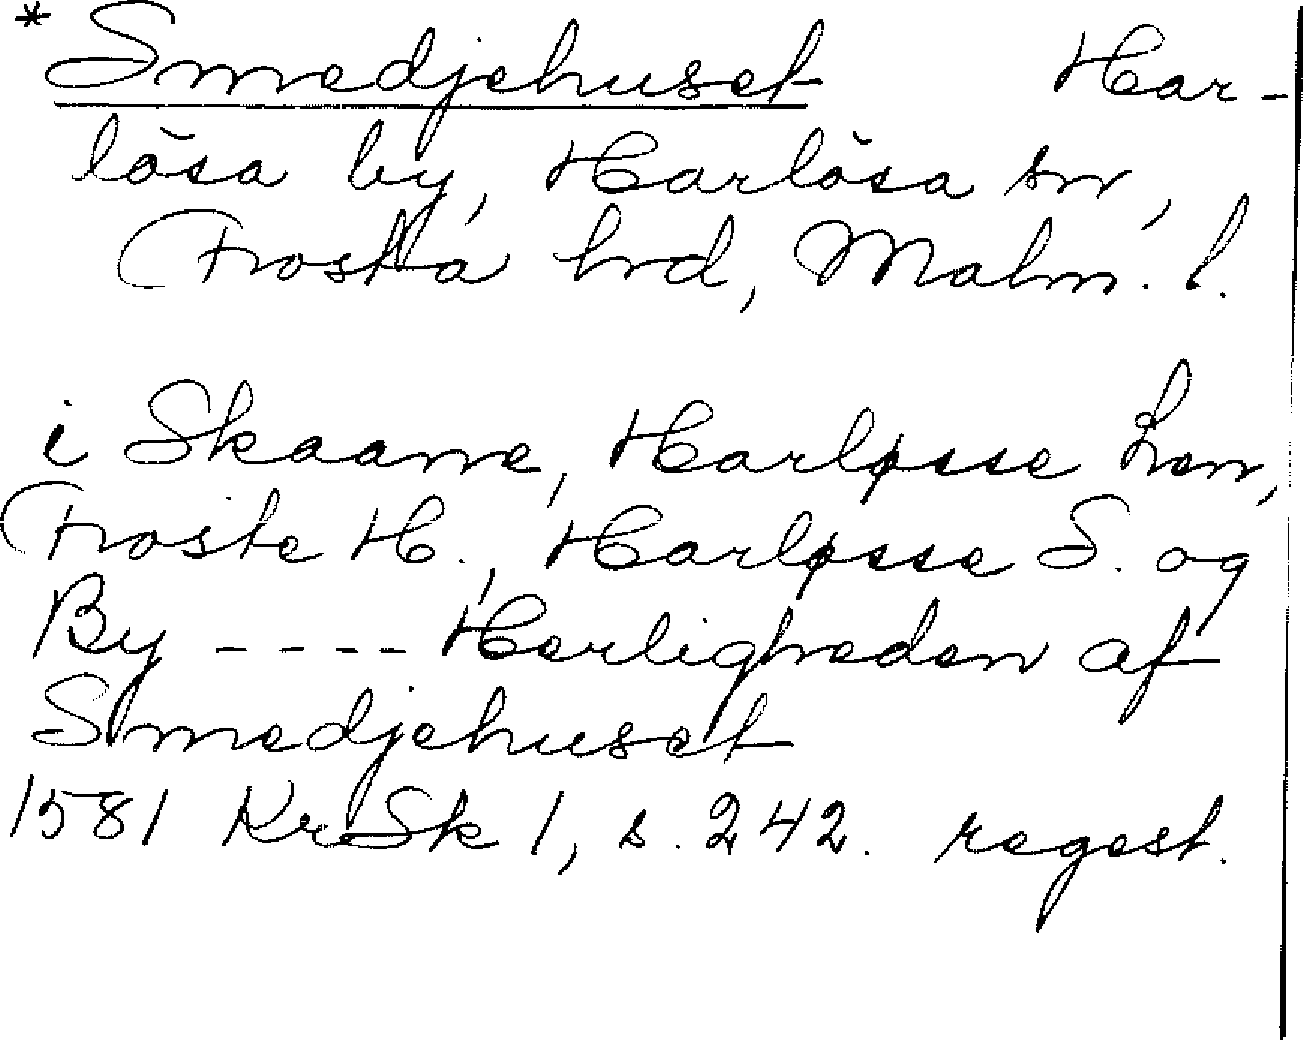 * Smedjehuset Har-
lösa by, Harlösa sn,
Frosta hrd, Malm. l.
i Skaane, Harløsse Len,
Froste H., Harløsse S. og
By ---- Herligheden af
Smedjehuset
1581 KrSk 1, s. 242. regest.